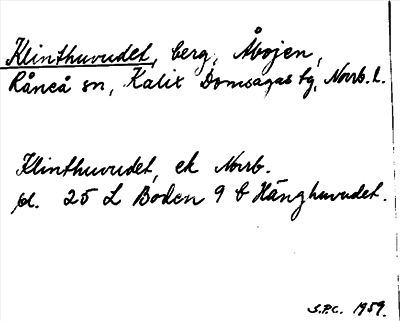 Klinthuvudet, berg, Åbojen,
Råneå sn, Kalix Domsagas tg, Norrb. l.
Klinthuvudet, ek Norrb.
bl. 25 L Boden 9 b Hänghuvudet.
S.P.C. 1959.